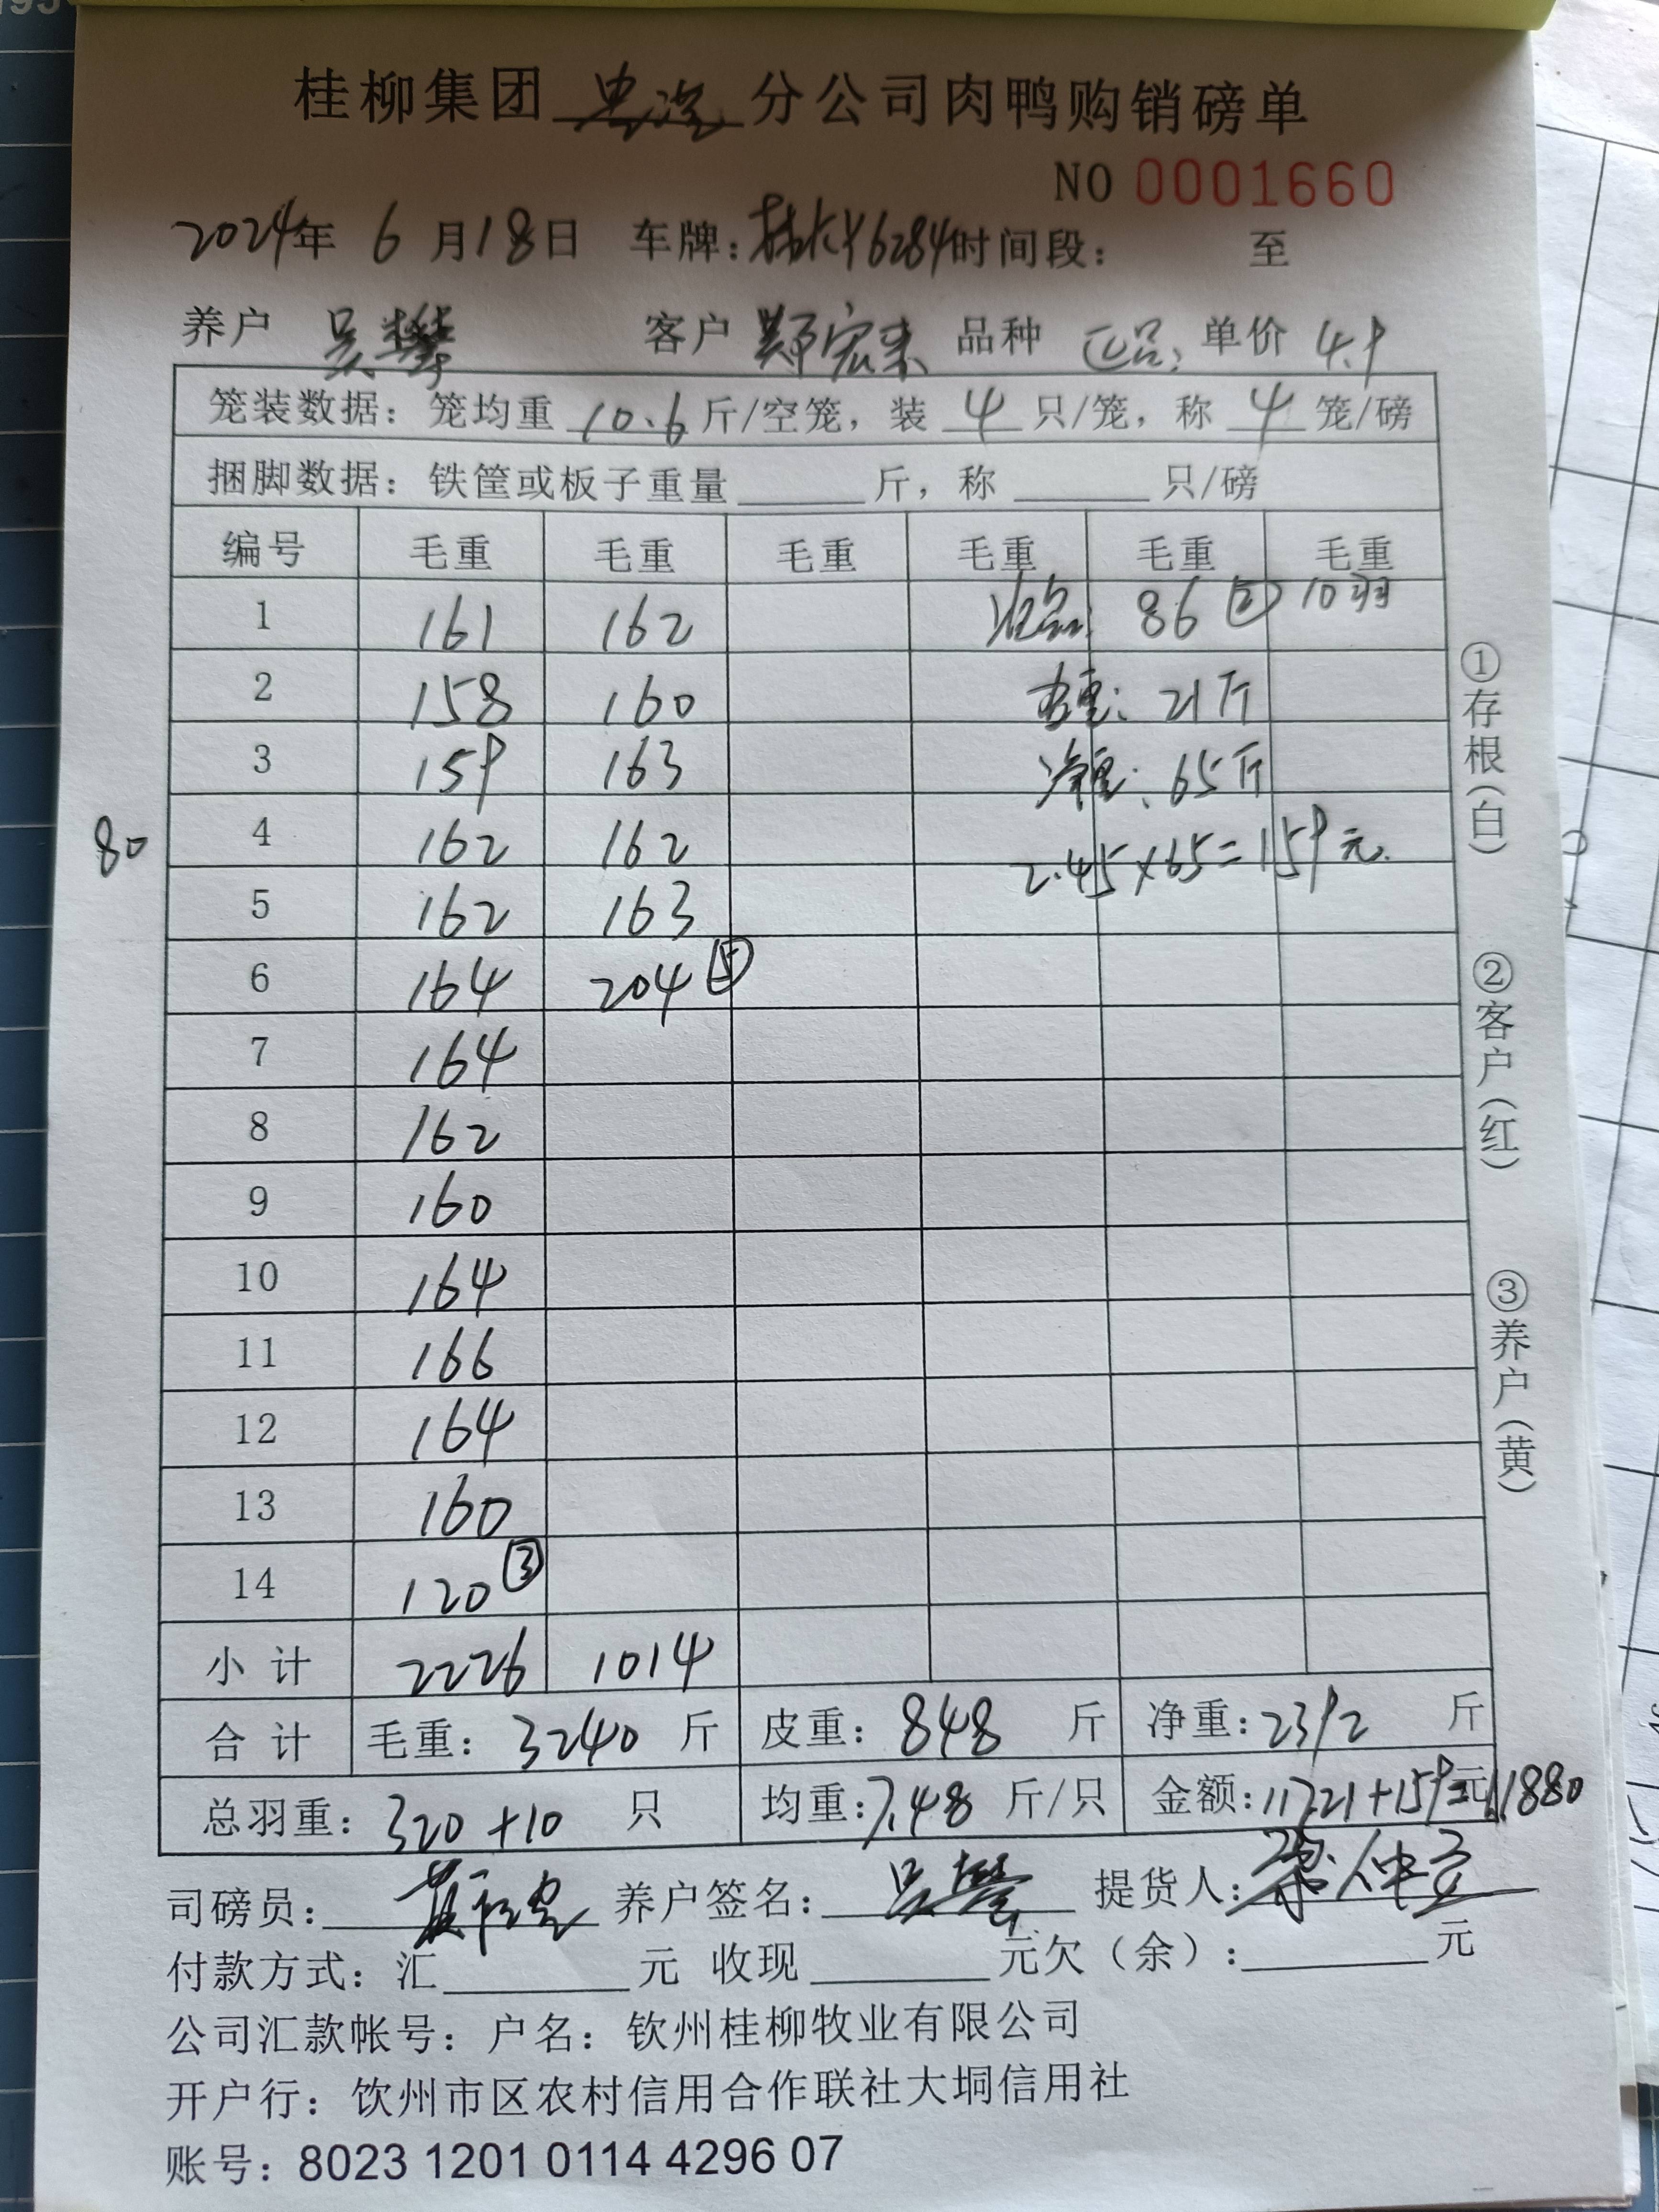 桂柳集团 分公司肉鸭购销磅单
NO 0001660
2024年 6月18日 车牌: 6284 时间段: 至
养户 吴攀 客户 郑宏来 品种 正品 单价 4.9
笼装数据: 笼均重 10.6 斤/空笼, 装 4 只/笼, 称 4 笼/磅
捆脚数据: 铁筐或板子重量 斤, 称 只/磅
编号 毛重 毛重 毛重 毛重 毛重 毛重
1 161 162 86 ② 10羽
2 158 160 皮重: 21斤
3 159 163 净重: 65斤
80
4 162 162 2.45×65=159元.
5 162 163
6 164 204 ⑤
7 164
8 162
9 160
10 164
11 166
12 164
13 160
14 120 ③
小计 2226 1014
合计 毛重: 3240 斤 皮重: 848 斤 净重: 2392 斤
总羽重: 320+10 只 均重: 7.48 斤/只 金额: 11721+159=11880 元
司磅员: 养户签名: 吴攀 提货人:
付款方式: 汇 元 收现 元欠(余): 元
公司汇款帐号: 户名: 钦州桂柳牧业有限公司
开户行: 饮州市区农村信用合作联社大垌信用社
账号: 8023 1201 0114 4296 07
①存根(白) ②客户(红) ③养户(黄)